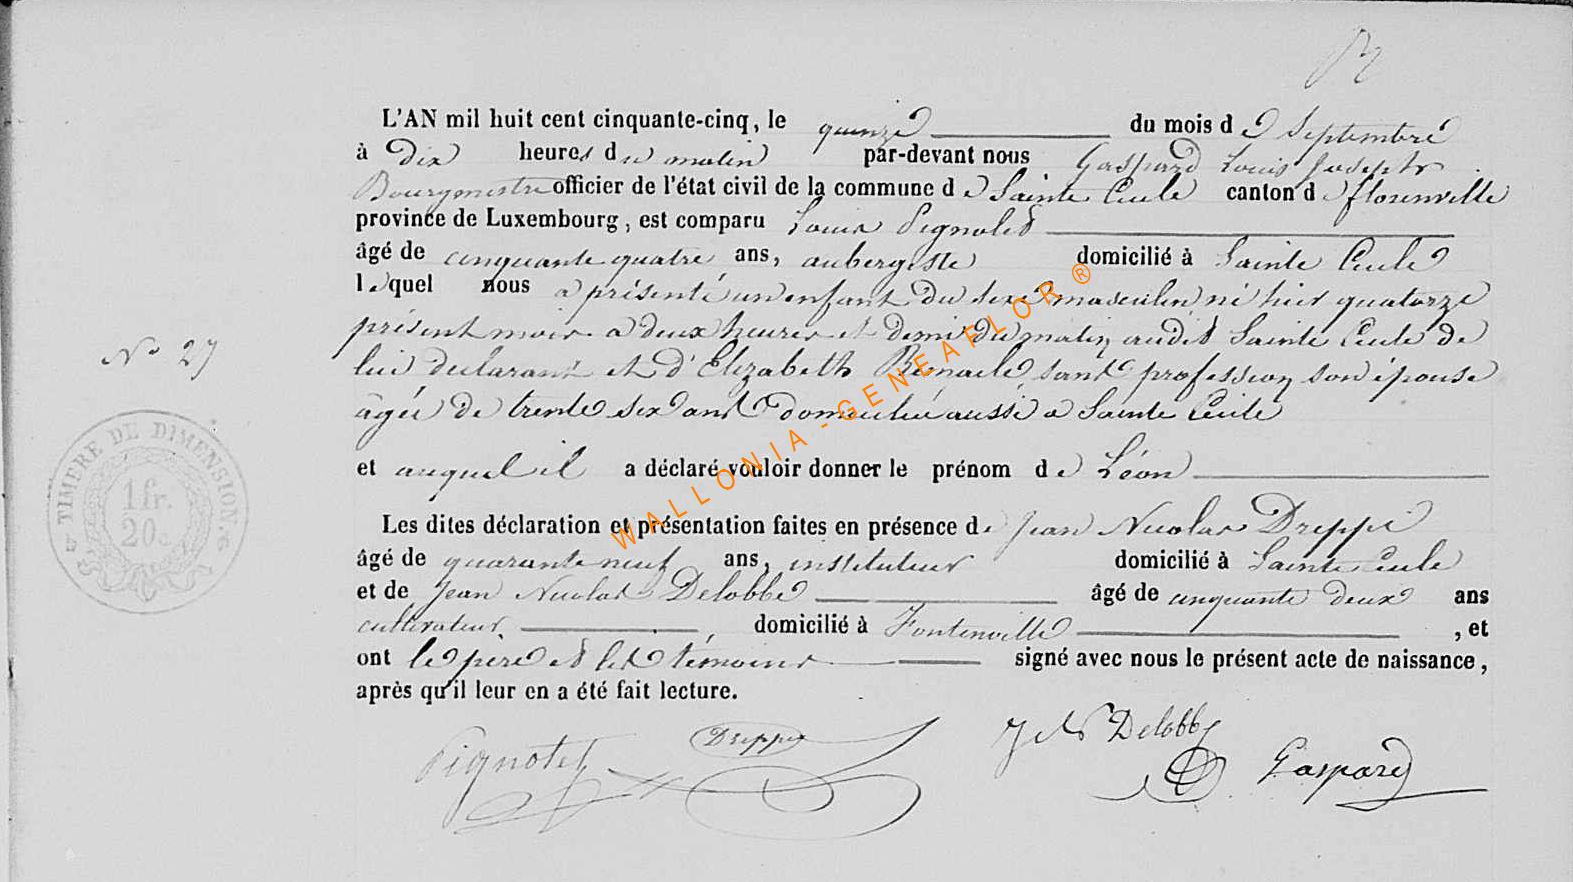 L'AN mil huit cent cinquante-cinq, le quinze du mois de Septembre
à dix heures du matin par-devant nous Gaspard Louis Joseph
Bourgmestre officier de l'état civil de la commune de Sainte Cecile canton de florenville
province de Luxembourg, est comparu Louis Pignolet
âgé de cinquante quatre ans, aubergiste domicilié à Sainte Cecile
lequel nous a présenté un enfant du sexe masculin né hier quatorze
présent mois a deux heures et demi du matin audit Sainte Cecile de
lui declarant et d'Elizabeth Remacle sans profession son épouse
âgée de trente six ans domiciliée aussi a Sainte Cécile
et auquel il a déclaré vouloir donner le prénom de Léon
N° 27
5me TIMBRE DE DIMENSION.
1 fr.
20 c.
Les dites déclaration et présentation faites en présence de Jean Nicolas Dreppe
âgé de quarante neuf ans, instituteur domicilié à Sainte Cecile
et de Jean Nicolas Delobbe âgé de cinquante deux ans
cultivateur, domicilié à Fontenoille, et
ont le père et les témoins signé avec nous le présent acte de naissance,
après qu'il leur en a été fait lecture.
Pignolet Dreppe J N Delobbe
Gaspard
WALLONIA-GENEAFLOR®